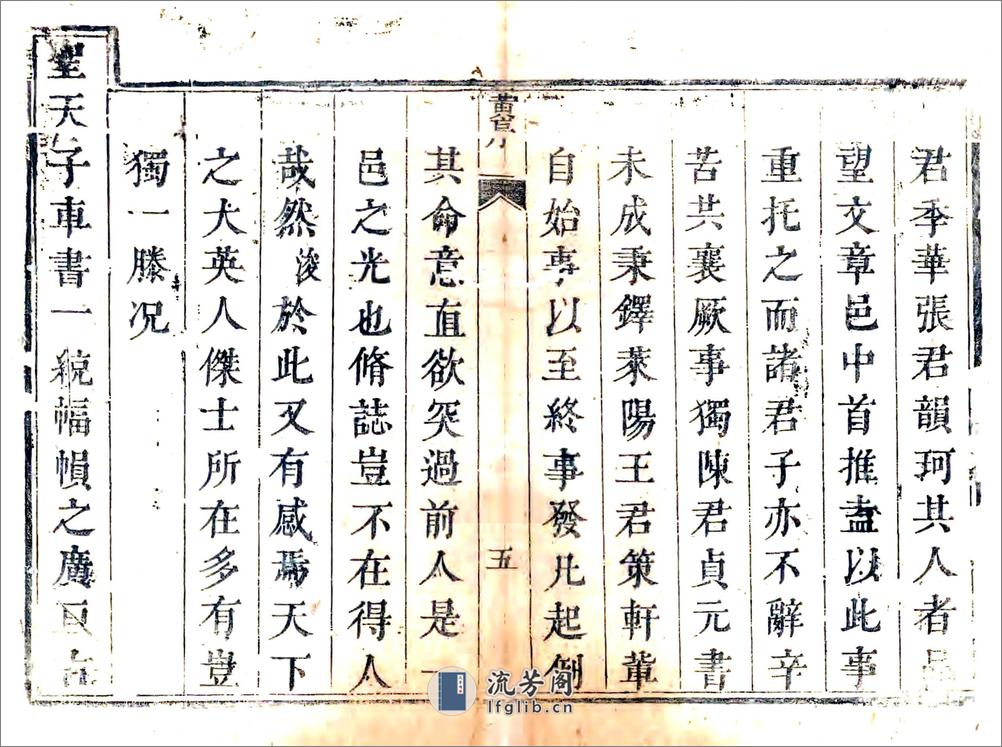 君季華張君韻珂其人者
望文章邑中首推盍以此事
重托之而諸君子亦不辭辛
苦共襄厥事獨陳君貞元書
未成秉鐸萊陽王君策軒葷
自始事以至終事發凡起例
五
其命意直欲突過前人是一
邑之光也脩誌豈不在得人
哉然浚於此又有感焉天下
之大英人傑士所在多有豈
獨一滕况
聖天子車書一統幅幀之廣亘古
流芳阁
lfglib.cn